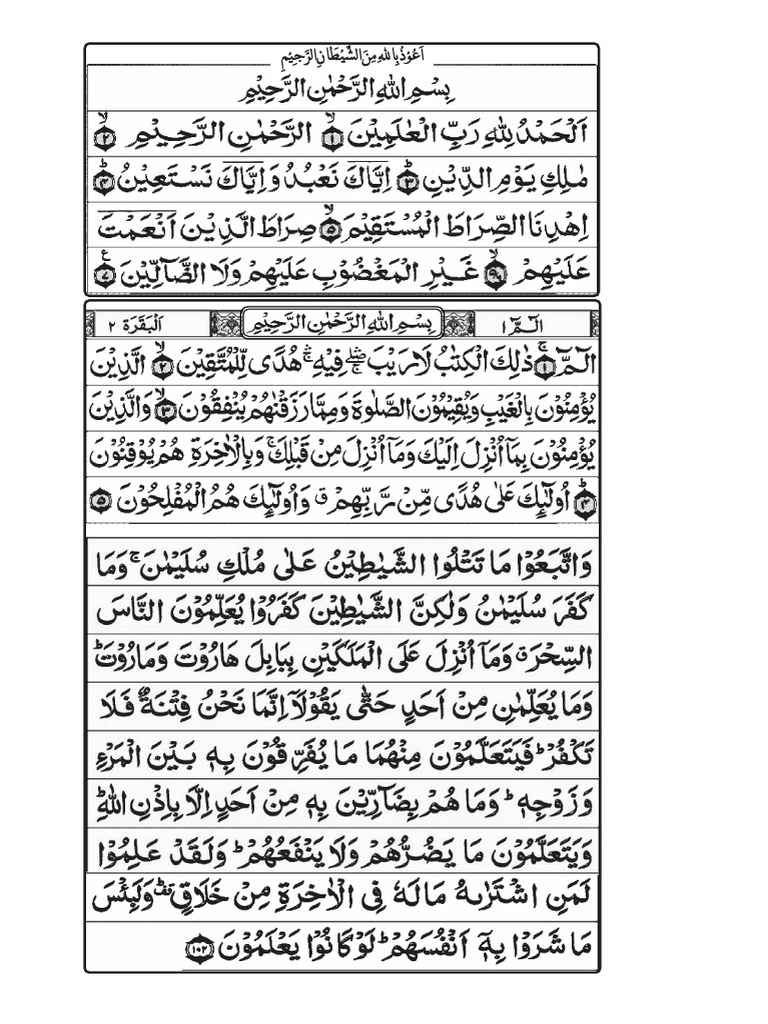 اَعُوْذُ بِاللّٰهِ مِنَ الشَّيْطَانِ الرَّجِيْمِ
بِسْمِ اللّٰهِ الرَّحْمٰنِ الرَّحِيْمِ
اَلْحَمْدُ لِلّٰهِ رَبِّ الْعٰلَمِيْنَ ۙ﴿۱﴾ الرَّحْمٰنِ الرَّحِيْمِ ۙ﴿۲﴾
مٰلِكِ يَوْمِ الدِّيْنِ ؕ﴿۳﴾ اِيَّاكَ نَعْبُدُ وَ اِيَّاكَ نَسْتَعِيْنُ ؕ﴿۴﴾
اِهْدِنَا الصِّرَاطَ الْمُسْتَقِيْمَ ۙ﴿۵﴾ صِرَاطَ الَّذِيْنَ اَنْعَمْتَ
عَلَيْهِمْ ۙ﴿۶﴾ غَيْرِ الْمَغْضُوْبِ عَلَيْهِمْ وَلَا الضَّآلِّيْنَ ﴿۷﴾
الٓمّٓ ۱
بِسْمِ اللّٰهِ الرَّحْمٰنِ الرَّحِيْمِ
اَلْبَقَرَة ۲
الٓمّٓ ۚ﴿۱﴾ ذٰلِكَ الْكِتٰبُ لَا رَيْبَ ۛۖۚ فِيْهِ ۛۚ هُدًى لِّلْمُتَّقِيْنَ ۙ﴿۲﴾ الَّذِيْنَ
يُؤْمِنُوْنَ بِالْغَيْبِ وَيُقِيْمُوْنَ الصَّلٰوةَ وَمِمَّا رَزَقْنٰهُمْ يُنْفِقُوْنَ ۙ﴿۳﴾ وَالَّذِيْنَ
يُؤْمِنُوْنَ بِمَآ اُنْزِلَ اِلَيْكَ وَمَآ اُنْزِلَ مِنْ قَبْلِكَ ۚ وَبِالْاٰخِرَةِ هُمْ يُوْقِنُوْنَ
ؕ﴿۴﴾ اُولٰٓئِكَ عَلٰى هُدًى مِّنْ رَّبِّهِمْ ۗ وَاُولٰٓئِكَ هُمُ الْمُفْلِحُوْنَ ﴿۵﴾
وَاتَّبَعُوْا مَا تَتْلُوا الشَّيٰطِيْنُ عَلٰى مُلْكِ سُلَيْمٰنَ ۚ وَمَا
كَفَرَ سُلَيْمٰنُ وَلٰكِنَّ الشَّيٰطِيْنَ كَفَرُوْا يُعَلِّمُوْنَ النَّاسَ
السِّحْرَ ۗ وَمَآ اُنْزِلَ عَلَى الْمَلَكَيْنِ بِبَابِلَ هَارُوْتَ وَمَارُوْتَ ؕ
وَمَا يُعَلِّمٰنِ مِنْ اَحَدٍ حَتّٰى يَقُوْلَآ اِنَّمَا نَحْنُ فِتْنَةٌ فَلَا
تَكْفُرْ ؕ فَيَتَعَلَّمُوْنَ مِنْهُمَا مَا يُفَرِّقُوْنَ بِهٖ بَيْنَ الْمَرْءِ
وَزَوْجِهٖ ؕ وَمَا هُمْ بِضَآرِّيْنَ بِهٖ مِنْ اَحَدٍ اِلَّا بِاِذْنِ اللّٰهِ ؕ
وَيَتَعَلَّمُوْنَ مَا يَضُرُّهُمْ وَلَا يَنْفَعُهُمْ ؕ وَلَقَدْ عَلِمُوْا
لَمَنِ اشْتَرٰىهُ مَا لَهٗ فِى الْاٰخِرَةِ مِنْ خَلَاقٍ ؕ وَلَبِئْسَ
مَا شَرَوْا بِهٖٓ اَنْفُسَهُمْ ؕ لَوْ كَانُوْا يَعْلَمُوْنَ ﴿۱۰۲﴾